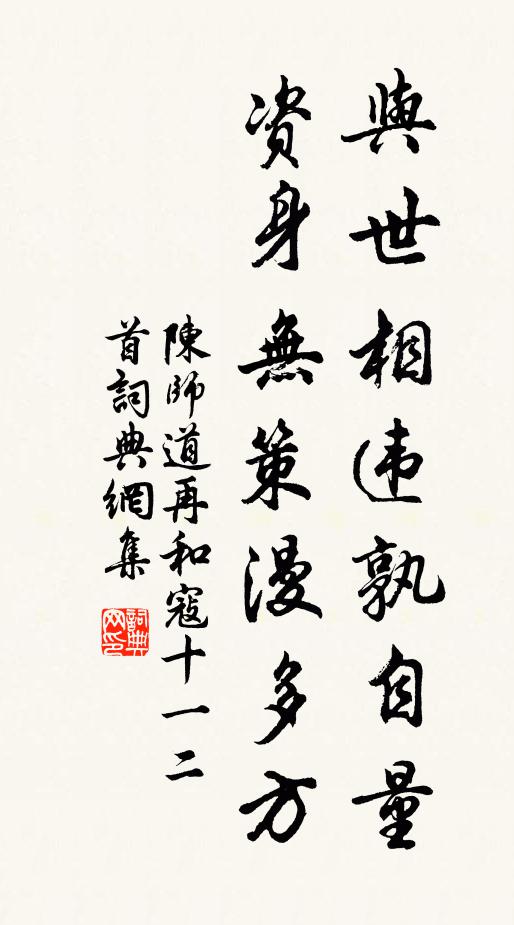 與世相违孰自量
資身無策漫多方
陳師道再和寇十一二
首詞典網集
詞典網印